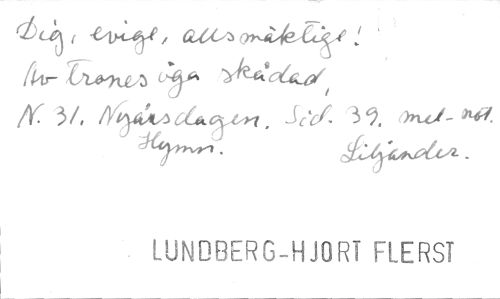 Dig, evige, allsmäktige!
Av trones öga skådad,
N. 31. Nyårsdagen. Sid. 39. mel-not.
Hymn. Liljander.
LUNDBERG-HJORT FLERST